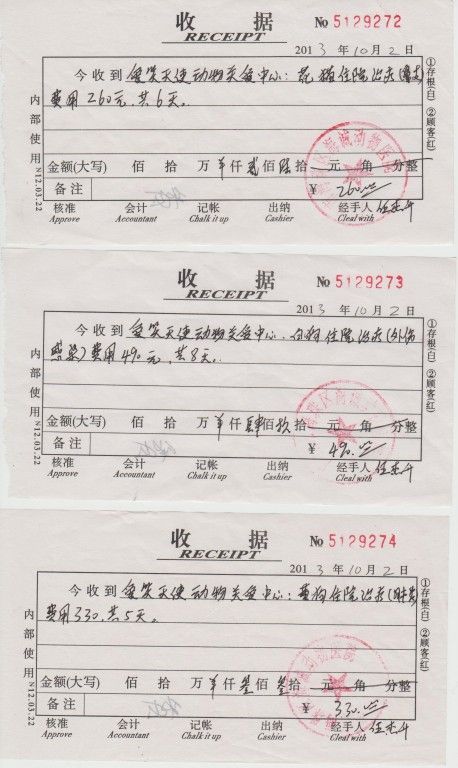 收 据 No 5129272
RECEIPT
2013 年 10 月 2 日
今收到 爱笑天使动物关爱中心：花猫住院治疗
费用260元，共6天。
金额(大写) 佰 拾 万 仟 贰 佰 陆 拾 元 角 分整
备注 ¥ 260.00
核准 会计 记帐 出纳 经手人
Approve Accountant Chalk it up Cashier Cleal with
内部使用 N12.03.22
①存根(白) ②顾客(红)
收 据 No 5129273
RECEIPT
2013 年 10 月 2 日
今收到 爱笑天使动物关爱中心：白狗住院治疗(外伤
感染)费用490元，共8天。
金额(大写) 佰 拾 万 仟 肆 佰 玖 拾 元 角 分整
备注 ¥ 490.00
核准 会计 记帐 出纳 经手人
Approve Accountant Chalk it up Cashier Cleal with
内部使用 N12.03.22
①存根(白) ②顾客(红)
收 据 No 5129274
RECEIPT
2013 年 10 月 2 日
今收到 爱笑天使动物关爱中心：黄狗住院治疗
费用330，共5天。
金额(大写) 佰 拾 万 仟 叁 佰 叁 拾 元 角 分整
备注 ¥ 330.00
核准 会计 记帐 出纳 经手人
Approve Accountant Chalk it up Cashier Cleal with
内部使用 N12.03.22
①存根(白) ②顾客(红)